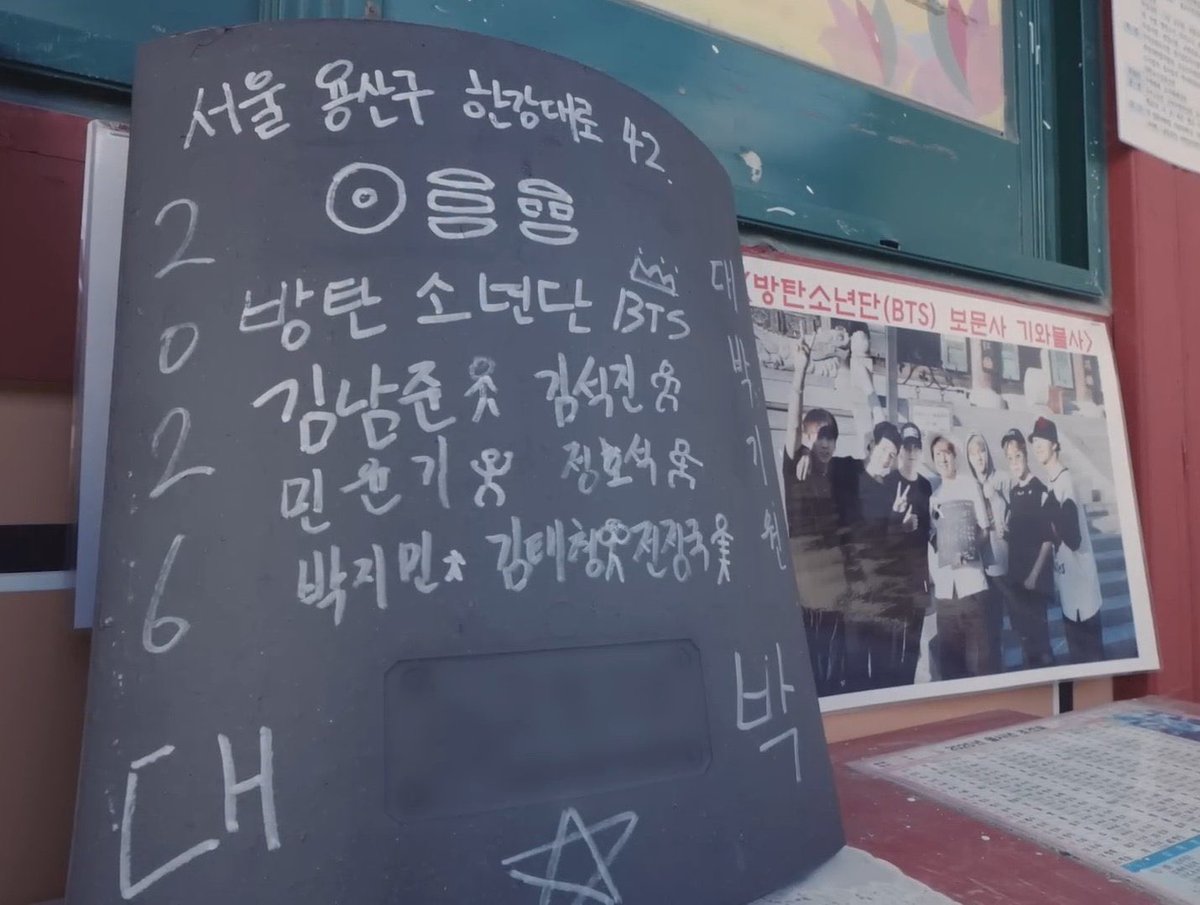 서울 용산구 한강대로 42.
방탄 소년단 BTS
김남준 김석진
민윤기 정호석
박지민 김태형 전정국
2026
대박기원
대박
<방탄소년단(BTS) 보문사 기와불사>